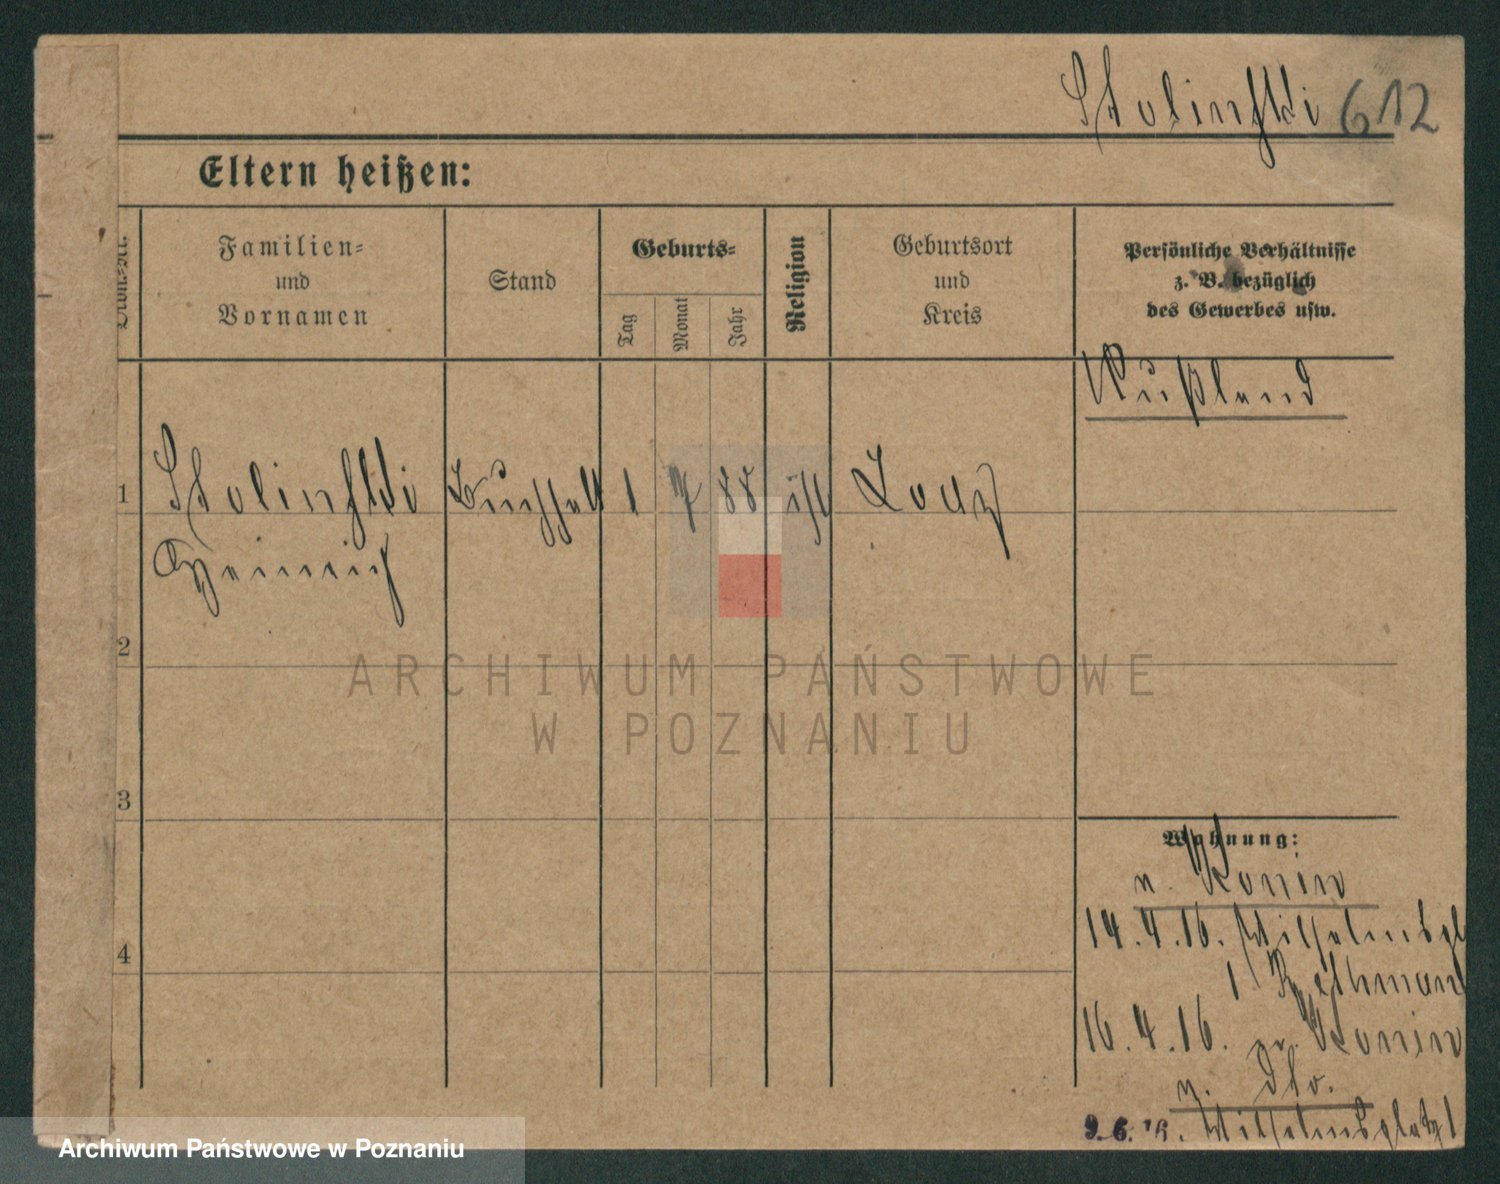 Stolinski 612
Eltern heißen:
Familien=
und
Vornamen
Stand
Geburts=
Tag
Monat
Jahr
Religion
Geburtsort
und
Kreis
Persönliche Verhältnisse
z. B. bezüglich
des Gewerbes usw.
Rußland
1 Stolinski Buchhalt 1 7 88 isr Lodz
Heinrich
2
3
4
Wohnung:
n. Konin
14.4.16. Wilhelmspl
1
16.4.16. Konin
n. dto.
9.6.16. Wilhelmsplatz 1
ARCHIWUM PAŃSTWOWE
W POZNANIU
Archiwum Państwowe w Poznaniu